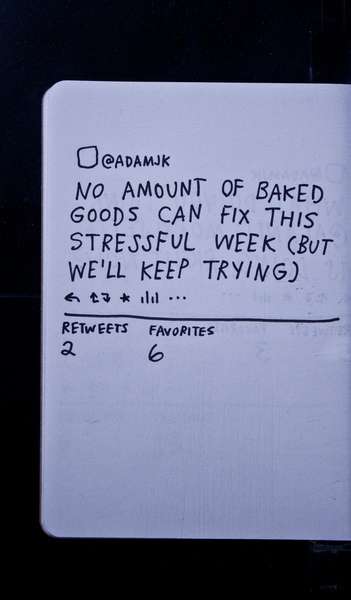 @ADAMJK
NO AMOUNT OF BAKED
GOODS CAN FIX THIS
STRESSFUL WEEK (BUT
WE'LL KEEP TRYING)
RETWEETS FAVORITES
2 6